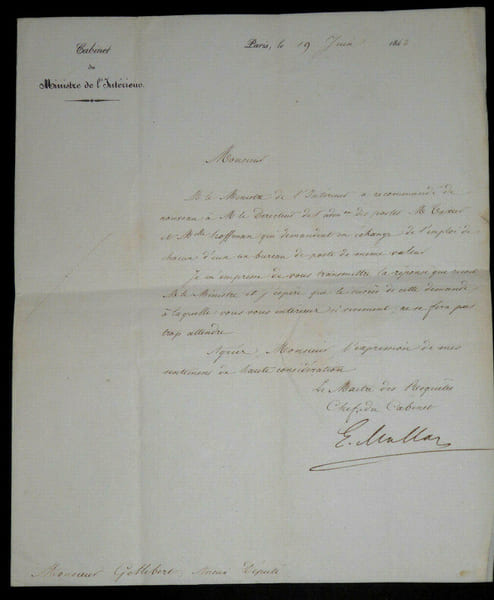 Cabinet
du
Ministre de l'Intérieur.
Paris, le 19 Juin 186
Monsieur
M. le Ministre de l'Intérieur a recommandé de
nouveau à M. le Directeur de l'admon des postes M.
et Melle Hoffman qui demandent en échange de l'emploi de
chacun d'eux un bureau de poste de même valeur.
Je m'empresse de vous transmettre la réponse que reçoit
M. le Ministre et j'espère que le succès de cette demande
à laquelle vous vous intéressez si vivement, ne se fera pas
trop attendre.
Agréez, Monsieur, l'expression de mes
sentimens de haute considération.
Le Maître des Requêtes
Chef du Cabinet
E.
Monsieur Député